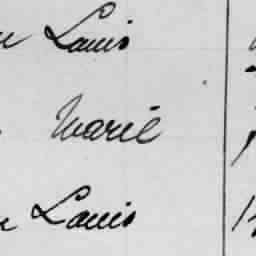 Louis
Marie
Louis